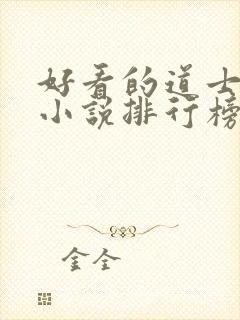 好看的道士
小说排行榜
金全